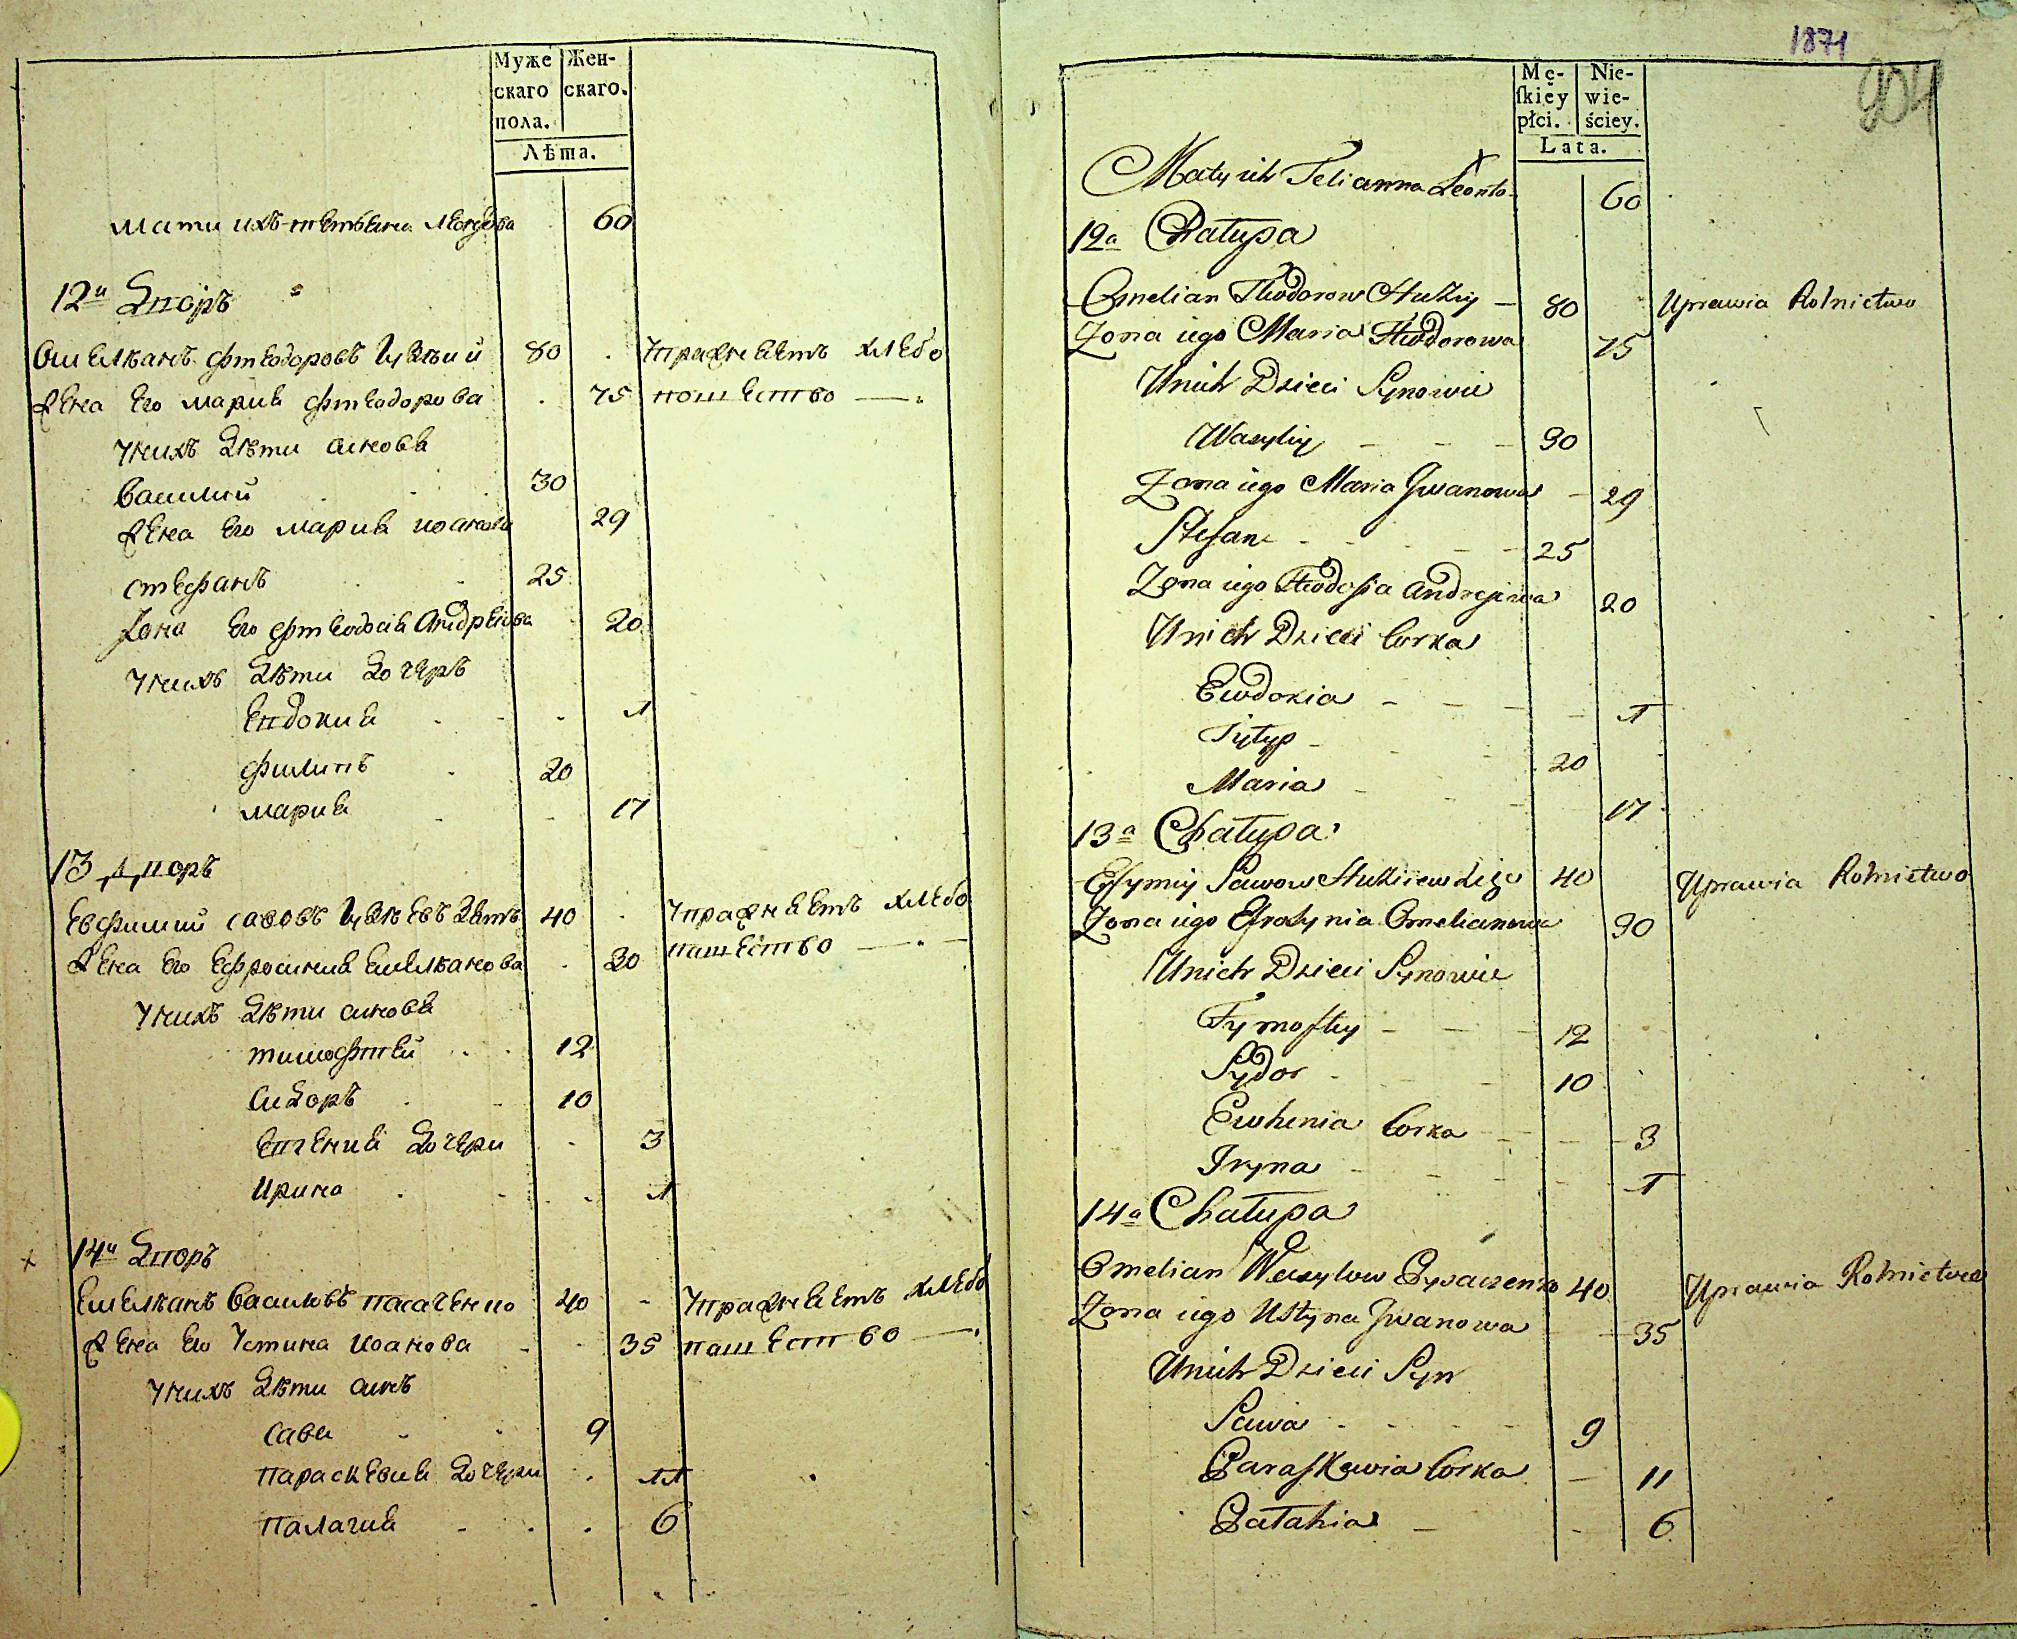 Муже Жен-
скаго скаго.
пола.
Лѣта.
мати ихъ 60
12й Дворъ
Омелянъ Фтеодоровъ 80 Упражняетъ хлебо
Жена Его мария Фтеодорова 75 пашество
Унихъ Дѣти синовя
Василий 30
Жена Его мария иоанова 29
стефанъ 25
Жена Его фтеодосия Андреива 20
Унихъ Дѣти дочеръ
Евдокия 1
филипъ 20
мария 17
13 Дворъ
Евфимий савовъ зять 40 Упражняетъ хлебо
Жена Его Ефросиния Емелянова 30 пашество
Унихъ Дѣти синовя
тимофтей 12
Сидоръ 10
Евгения Дочери 3
Ирина 1
14й Дворъ
Емелянъ Василовъ пасаченко 40 Упражняетъ хлебо
Жена Его Устина иоанова 35 пашество
Унихъ Дѣти синъ
сава 9
параскевия дочери 11
палагия 6
1871
204
Mę- Nie-
ſkiey wie-
płci. ściey.
Lata.
Matyich Tetianna Leonto 60
12a Chatupa
Omelian Fteodorow Hukiy 80 Uprawia Rolnictwo
Zona iego Maria Fteodorowa 75
Unich Dzieci Synowie
Wasyliy 30
Zona iego Maria Jwanowa 29
Stefan 25
Zona iego Fteodosia Andrejewa 20
Unich Dzieci Corka
Ewdokia 1
Fylyp 20
Maria 17
13a Chatupa
Efymiy Sawow 40 Uprawia Rolnictwo
Zona iego Efrosynia Omelianowa 30
Unich Dzieci Synowie
Tymoftey 12
Sydor 10
Ewhenia Corka 3
Iryna 1
14a Chatupa
Omelian Wasylow Pysaczenko 40 Uprawia Rolnictwo
Zona iego Ustyna Jwanowa 35
Unich Dzieci Syn
Sawa 9
Paraskewia Corka 11
Palahia 6